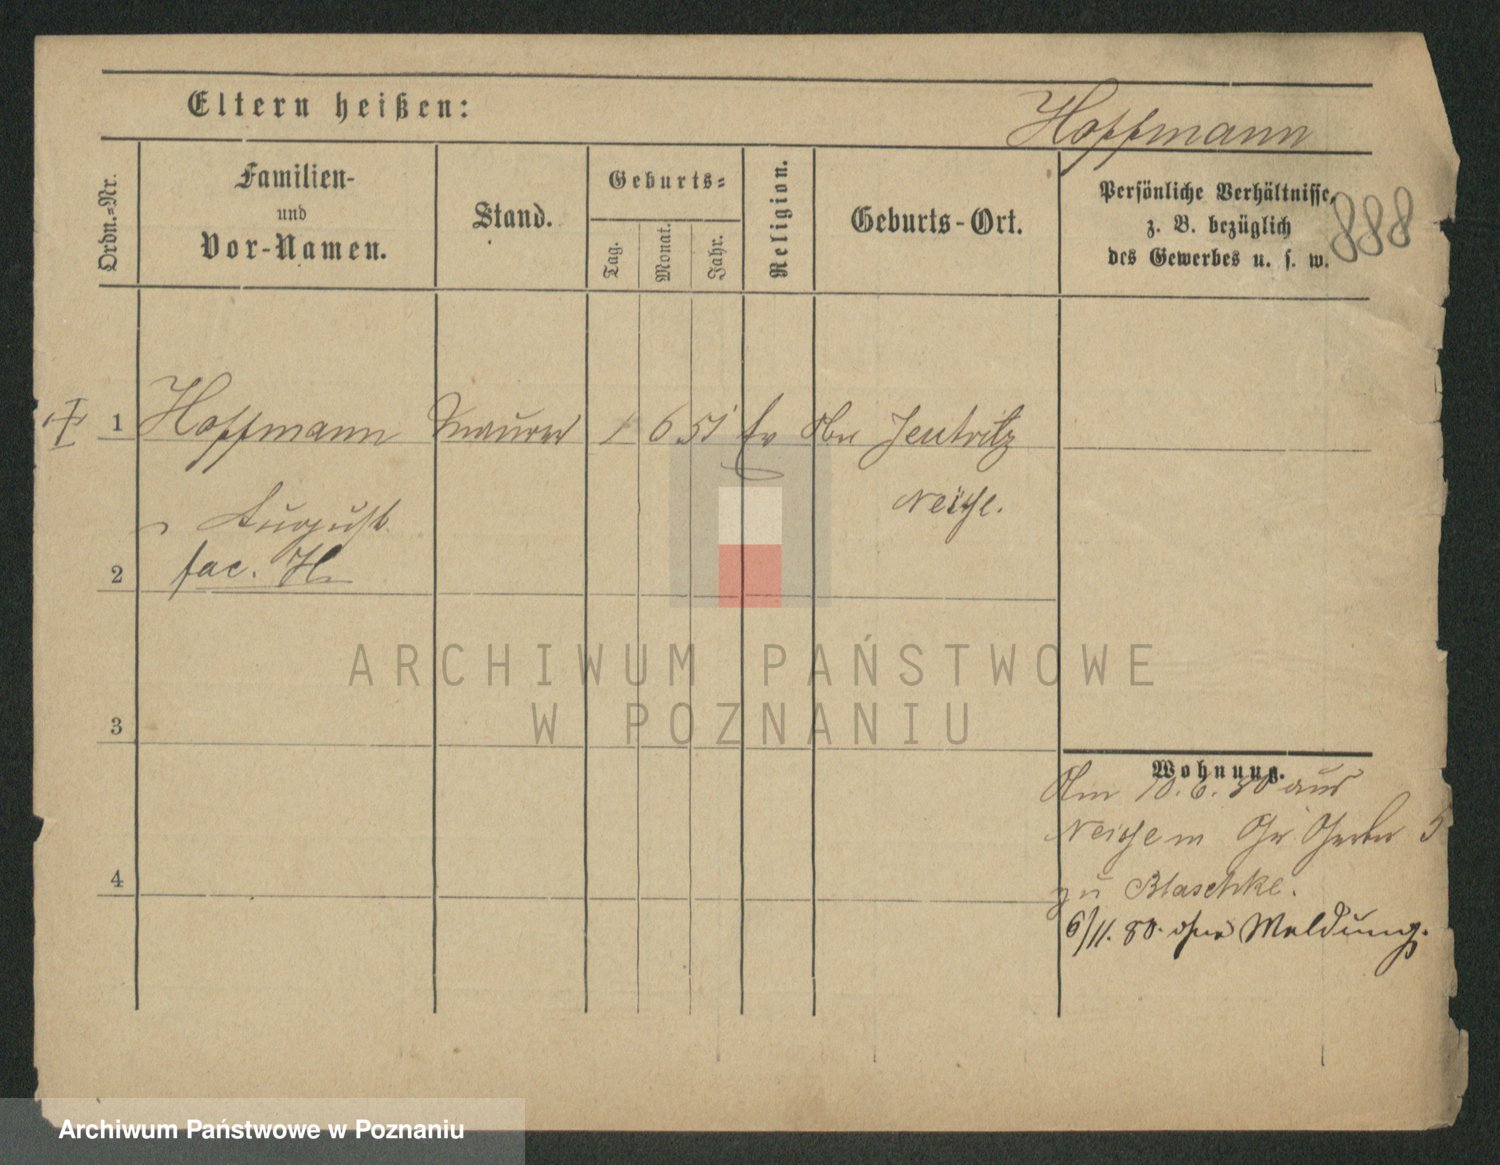 Eltern heißen:
Hoffmann
Ordn.=Nr.
Familien-
und
Vor-Namen.
Stand.
Geburts=
Tag.
Monat.
Jahr.
Religion.
Geburts-Ort.
Persönliche Verhältnisse,
z. B. bezüglich
des Gewerbes u. s. w.
888
1 Hoffmann Maurer 1 6 51 Ev Obr Jeutritz
Neisse.
August
fac. H
2
3
4
Wohnung.
Am 10.6.80 aus
Neisse in Gr. Gerber 5
zu Blaschke.
6/11. 80. ohne Meldung.
ARCHIWUM PAŃSTWOWE
W POZNANIU
Archiwum Państwowe w Poznaniu